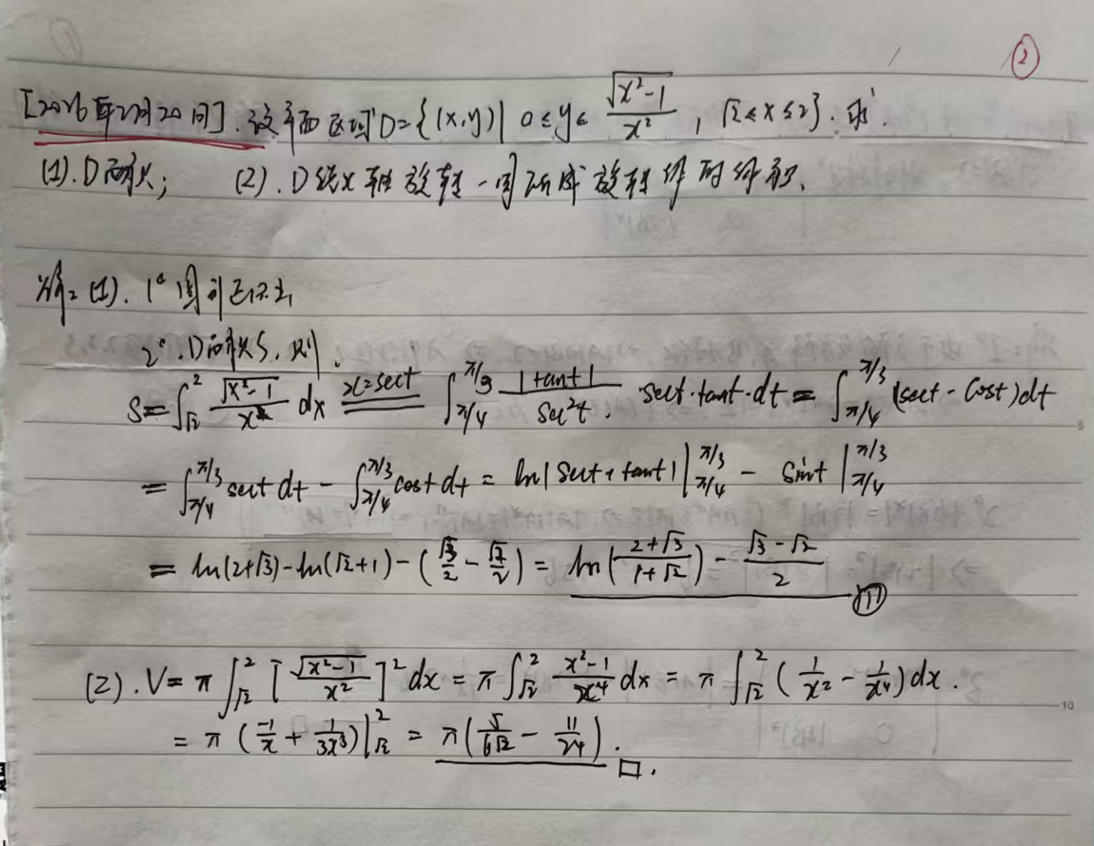 ②
[2026年2月20问]. 设平面区域D={(x,y)| 0≤y≤ √(x²-1)/x² , √2≤x≤2}. 求.
(1). D面积; (2). D绕x轴旋转一周所成旋转体的体积.
解: (1). 1°
2°. D面积S, 则.
S=∫_{√2}^{2} √(x²-1)/x² dx x=sect ∫_{π/4}^{π/3} |tant|/sec²t . sect·tant·dt = ∫_{π/4}^{π/3} (sect - cost)dt
= ∫_{π/4}^{π/3} sect dt - ∫_{π/4}^{π/3} cost dt = ln|sect+tant| |_{π/4}^{π/3} - sint |_{π/4}^{π/3}
= ln(2+√3)-ln(√2+1)-(√3/2 - √2/2) = ln((2+√3)/(1+√2)) - (√3-√2)/2
(2). V= π ∫_{√2}^{2} [√(x²-1)/x²]² dx = π ∫_{√2}^{2} (x²-1)/x⁴ dx = π ∫_{√2}^{2} (1/x² - 1/x⁴) dx.
= π (-1/x + 1/3x³)|_{√2}^{2} = π(5/6√2 - 11/24). □.